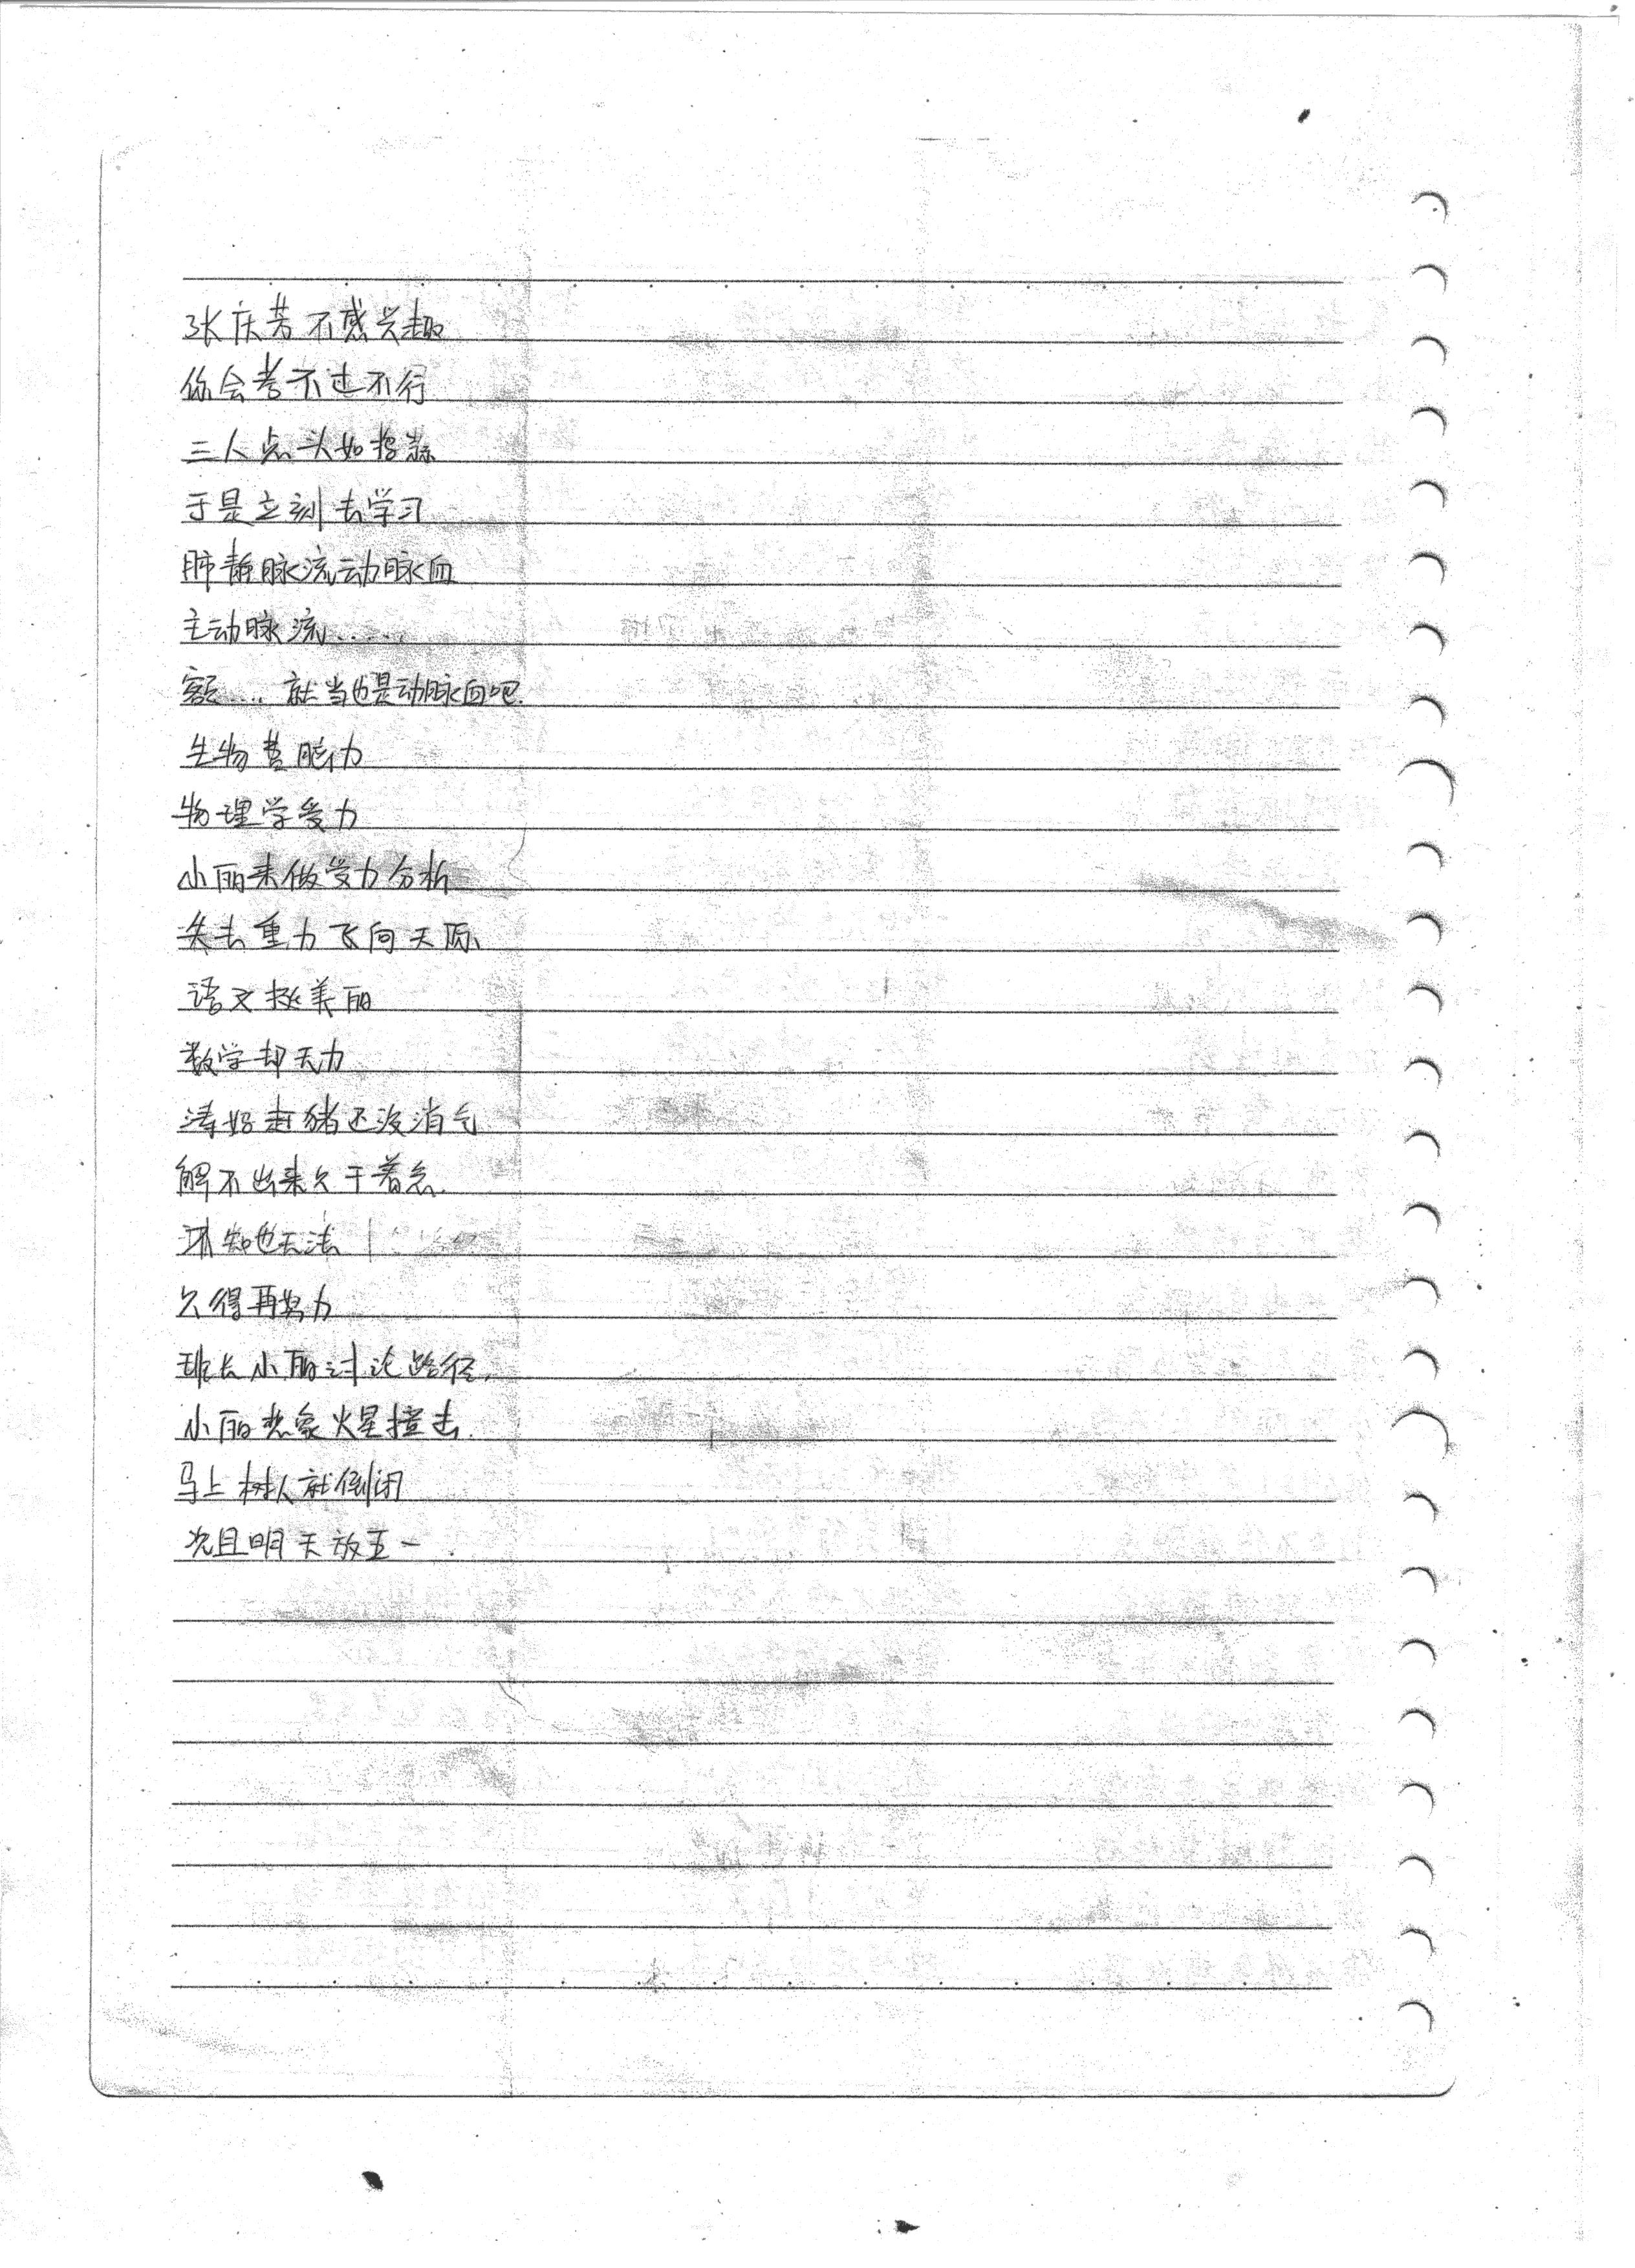 张庆芳不感兴趣
你会考不过不行
三人点头如捣蒜
于是立刻去学习
肺静脉流动脉血
主动脉流......
额.... 就当也是动脉血吧.
生物费脑力
物理学受力
小丽来做受力分析
失去重力飞向天际、
语文挺美丽
数学却无力
涛妈赶猪还没消气
解不出来只干着急.
环知也无法
只得再努力
班长小丽讨论路径,
小丽想象火星撞击.
马上树人就倒闭
况且明天放五一.